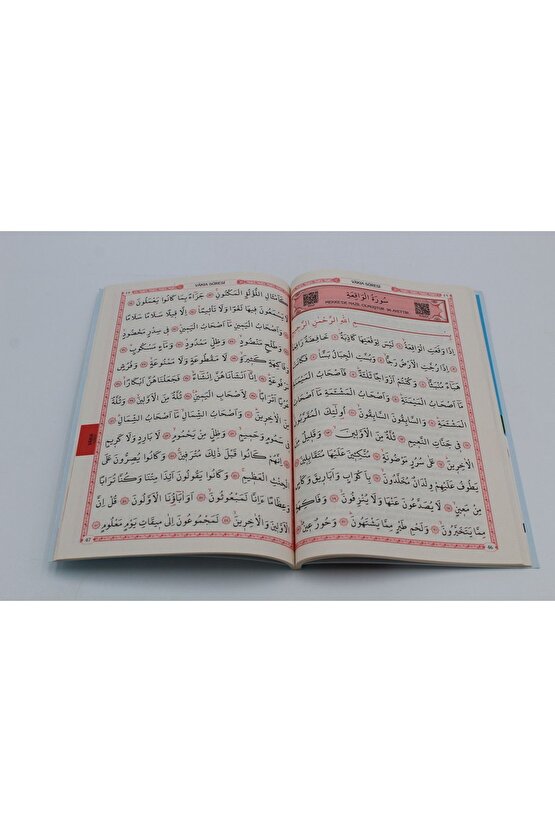 VÂKIA SÛRESİ
سُورَةُ الْوَاقِعَةِ
MEKKE'DE NAZİL OLMUŞTUR. 96 AYETTİR
اللهِ الرَّحْمٰنِ الرَّحِيمِ
اِذَا وَقَعَتِ الْوَاقِعَةُ لَيْسَ لِوَقْعَتِهَا كَاذِبَةٌ خَافِضَةٌ
اِذَا رُجَّتِ الْاَرْضُ رَجًّا وَبُسَّتِ الْجِبَالُ بَسًّا
هَبَاءً مُنْبَثًّا وَكُنْتُمْ اَزْوَاجًا ثَلٰثَةً فَاَصْحَابُ الْمَيْمَنَةِ
مَا اَصْحَابُ الْمَيْمَنَةِ وَاَصْحَابُ الْمَشْئَمَةِ مَا اَصْحَابُ
الْمَشْئَمَةِ وَالسَّابِقُونَ السَّابِقُونَ اُولٰئِكَ الْمُقَرَّبُونَ
فِي جَنَّاتِ النَّعِيمِ ثُلَّةٌ مِنَ الْاَوَّلِينَ وَقَلِيلٌ
الْاٰخِرِينَ عَلٰى سُرُرٍ مَوْضُونَةٍ مُتَّكِئِينَ عَلَيْهَا مُتَقَابِلِينَ
يَطُوفُ عَلَيْهِمْ وِلْدَانٌ مُخَلَّدُونَ بِاَكْوَابٍ وَاَبَارِيقَ وَكَأْسٍ
مِنْ مَعِينٍ لَا يُصَدَّعُونَ عَنْهَا وَلَا يُنْزِفُونَ وَفَاكِهَةٍ
مِمَّا يَتَخَيَّرُونَ وَلَحْمِ طَيْرٍ مِمَّا يَشْتَهُونَ وَحُورٌ عِينٌ
66
VÂKIA SÛRESİ
كَاَمْثَالِ اللُّؤْلُؤِ الْمَكْنُونِ جَزَاءً بِمَا كَانُوا يَعْمَلُونَ
لَا يَسْمَعُونَ فِيهَا لَغْوًا وَلَا تَأْثِيمًا اِلَّا قِيلًا سَلَامًا سَلَامًا
وَاَصْحَابُ الْيَمِينِ مَا اَصْحَابُ الْيَمِينِ فِي سِدْرٍ مَخْضُودٍ
وَطَلْحٍ مَنْضُودٍ وَظِلٍّ مَمْدُودٍ وَمَاءٍ مَسْكُوبٍ
وَفَاكِهَةٍ كَثِيرَةٍ لَا مَقْطُوعَةٍ وَلَا مَمْنُوعَةٍ وَفُرُشٍ
مَرْفُوعَةٍ اِنَّا اَنْشَأْنَاهُنَّ اِنْشَاءً فَجَعَلْنَاهُنَّ اَبْكَارًا
عُرُبًا اَتْرَابًا لِاَصْحَابِ الْيَمِينِ ثُلَّةٌ مِنَ الْاَوَّلِينَ وَثُلَّةٌ
مِنَ الْاٰخِرِينَ وَاَصْحَابُ الشِّمَالِ مَا اَصْحَابُ الشِّمَالِ
فِي سَمُومٍ وَحَمِيمٍ وَظِلٍّ مِنْ يَحْمُومٍ لَا بَارِدٍ وَلَا كَرِيمٍ
اِنَّهُمْ كَانُوا قَبْلَ ذٰلِكَ مُتْرَفِينَ وَكَانُوا يُصِرُّونَ عَلَى
الْحِنْثِ الْعَظِيمِ وَكَانُوا يَقُولُونَ اَئِذَا مِتْنَا وَكُنَّا تُرَابًا
وَعِظَامًا ءَاِنَّا لَمَبْعُوثُونَ اَوَاٰبَاؤُنَا الْاَوَّلُونَ قُلْ اِنَّ
الْاَوَّلِينَ وَالْاٰخِرِينَ لَمَجْمُوعُونَ اِلٰى مِيقَاتِ يَوْمٍ مَعْلُومٍ
67